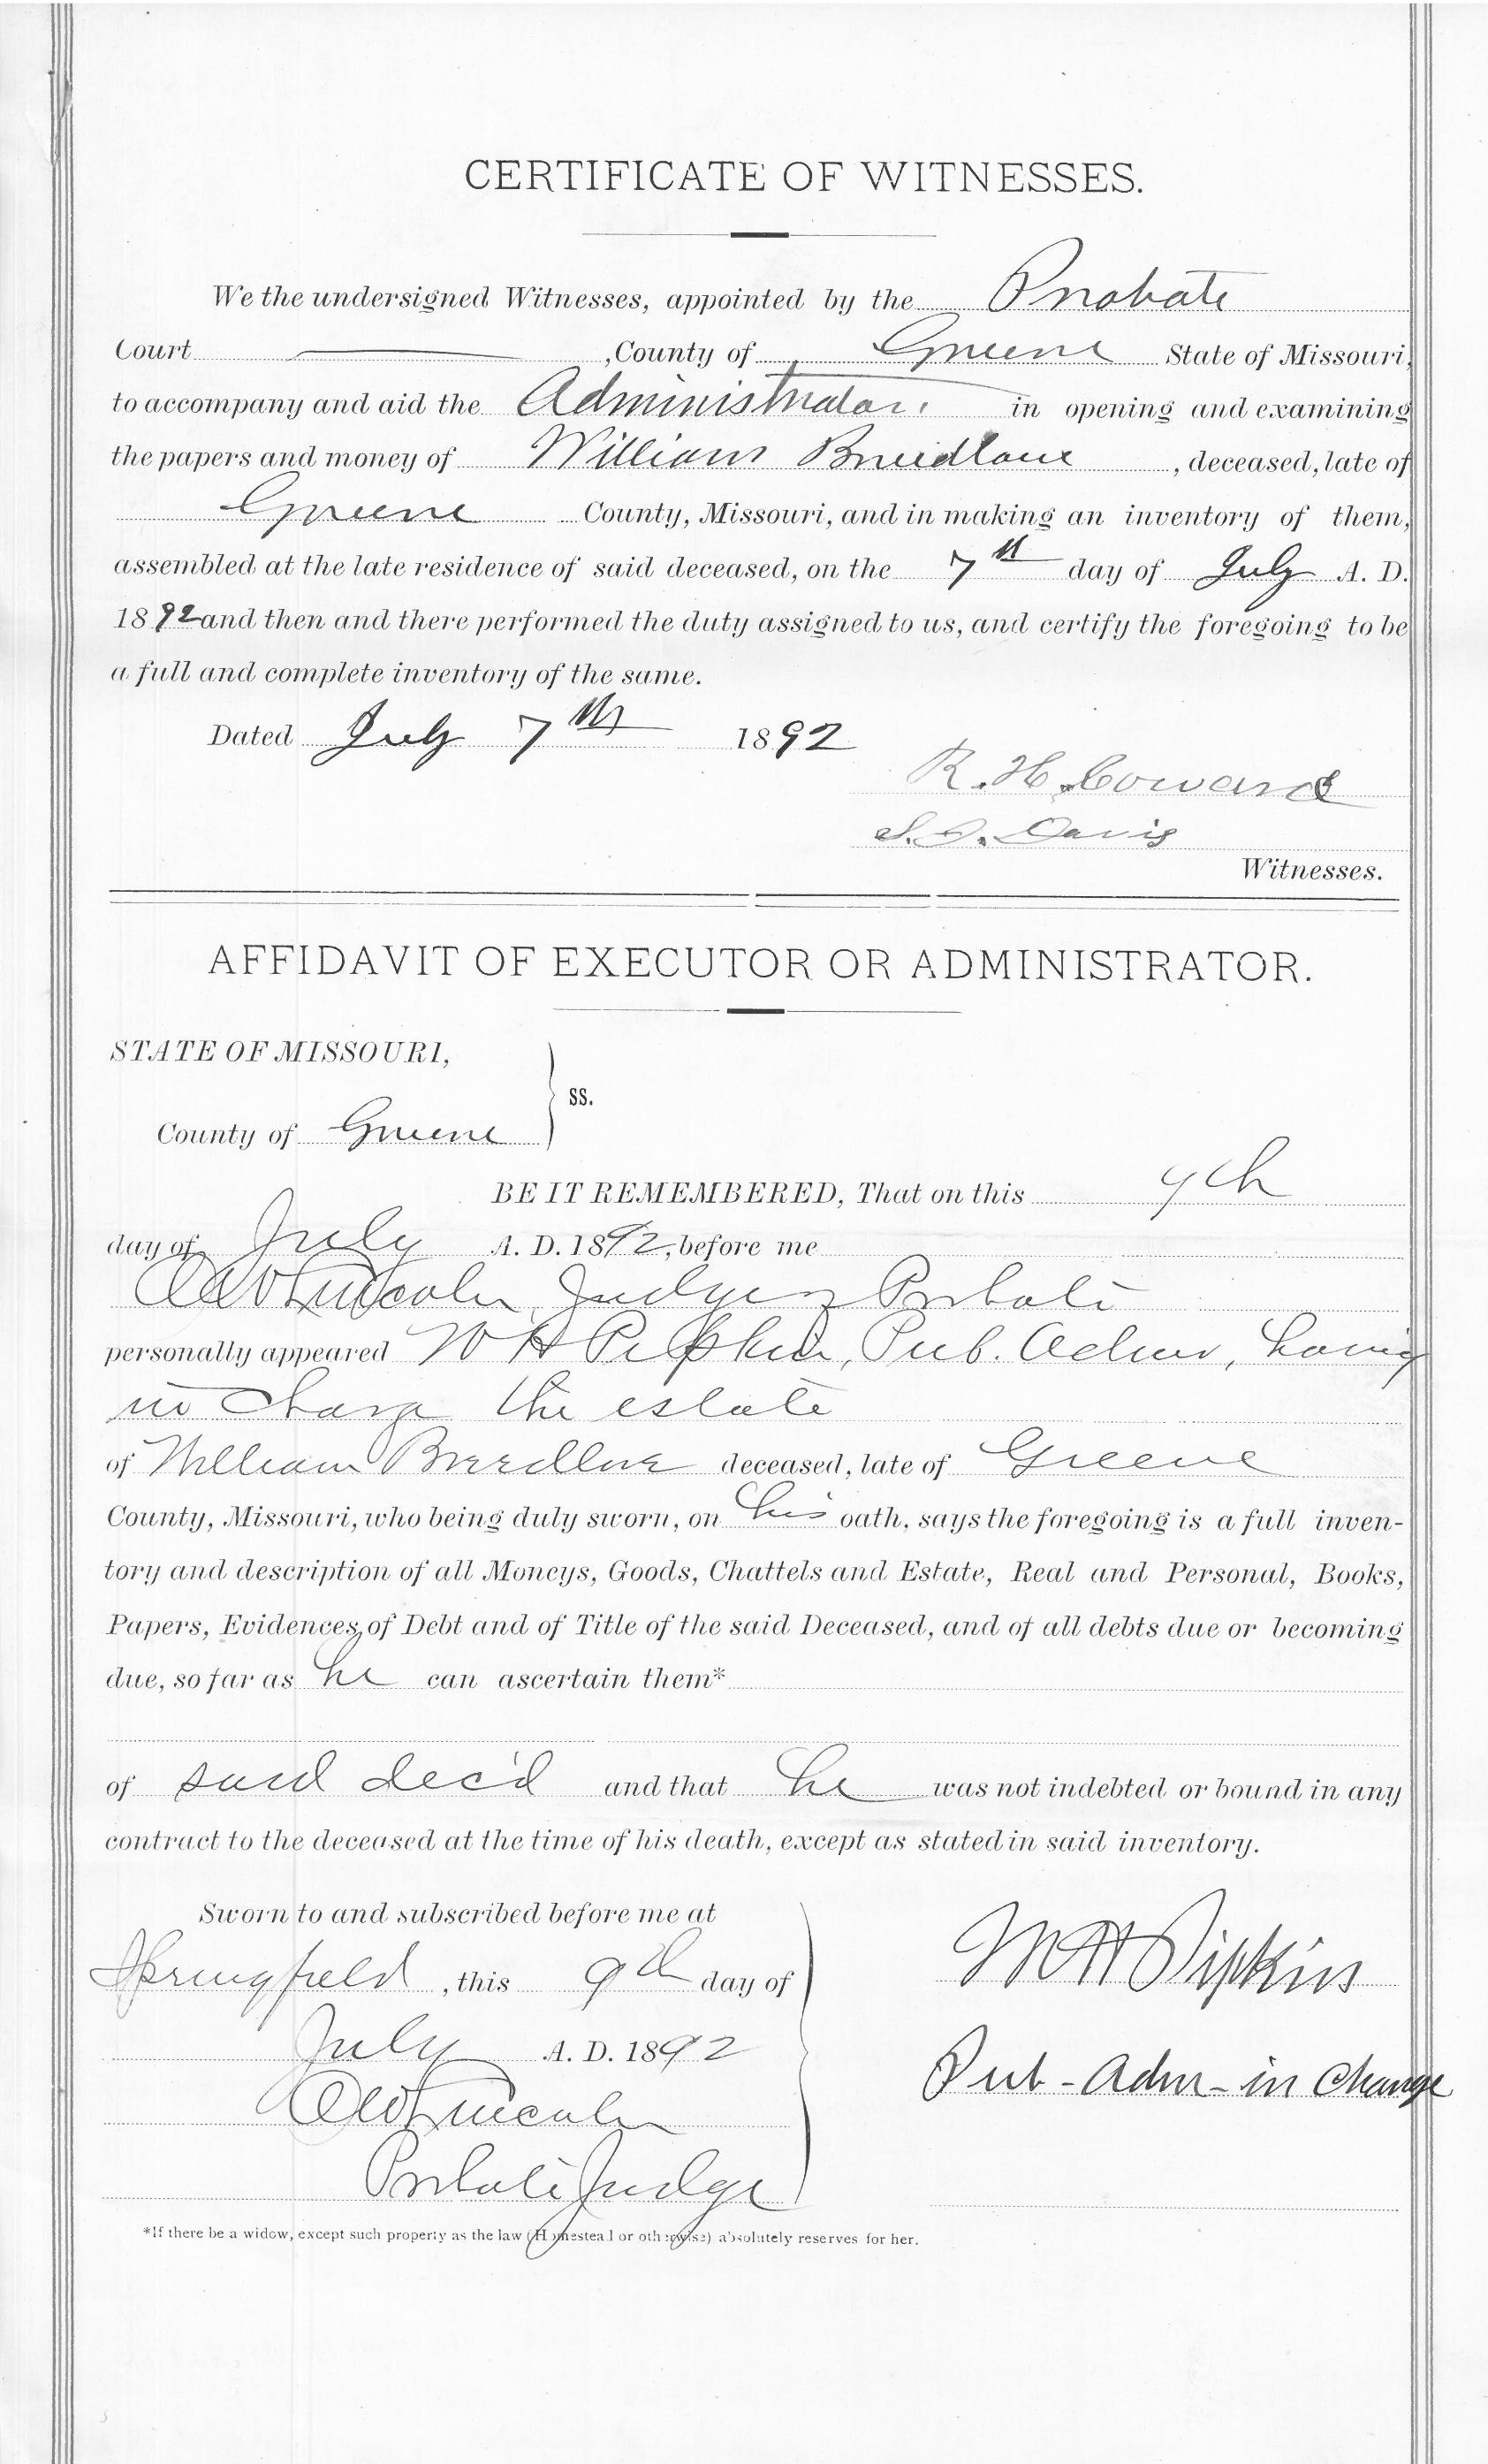 CERTIFICATE OF WITNESSES.
We the undersigned Witnesses, appointed by the Probate
Court , County of Greene State of Missouri,
to accompany and aid the Administrator in opening and examining
the papers and money of William Breedlove , deceased, late of
Greene County, Missouri, and in making an inventory of them,
assembled at the late residence of said deceased, on the 7th day of July A. D.
1892 and then and there performed the duty assigned to us, and certify the foregoing to be
a full and complete inventory of the same.
Dated July 7th 1892
R. H. Coward
S. J. Davis
Witnesses.
AFFIDAVIT OF EXECUTOR OR ADMINISTRATOR.
STATE OF MISSOURI,
ss.
County of Greene
BE IT REMEMBERED, That on this 9th
day of July A. D. 1892, before me
Lincoln Judge of Probate
personally appeared W H Pipkin, Pub. Admr, having
in charge the estate
of William Breedlove deceased, late of Greene
County, Missouri, who being duly sworn, on his oath, says the foregoing is a full inven-
tory and description of all Moneys, Goods, Chattels and Estate, Real and Personal, Books,
Papers, Evidences of Debt and of Title of the said Deceased, and of all debts due or becoming
due, so far as he can ascertain them*
of said dec'd and that he was not indebted or bound in any
contract to the deceased at the time of his death, except as stated in said inventory.
Sworn to and subscribed before me at
Springfield , this 9th day of
July A. D. 1892
Lincoln
Probate Judge
W H Pipkin
Pub - Adm - in Charge
*If there be a widow, except such property as the law (Homestead or otherwise) absolutely reserves for her.